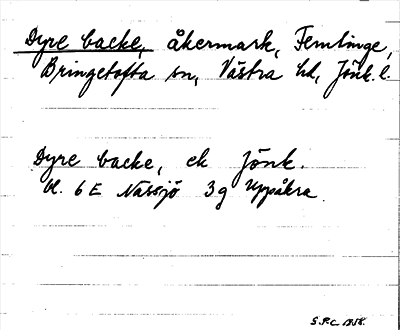 Dyre backe, åkermark, Femtinge,
Bringetofta sn, Västra hd, Jönk. l.
Dyre backe, ek Jönk.
bl. 6 E Nässjö 3 g Uppåkra
S.P.C. 1958.